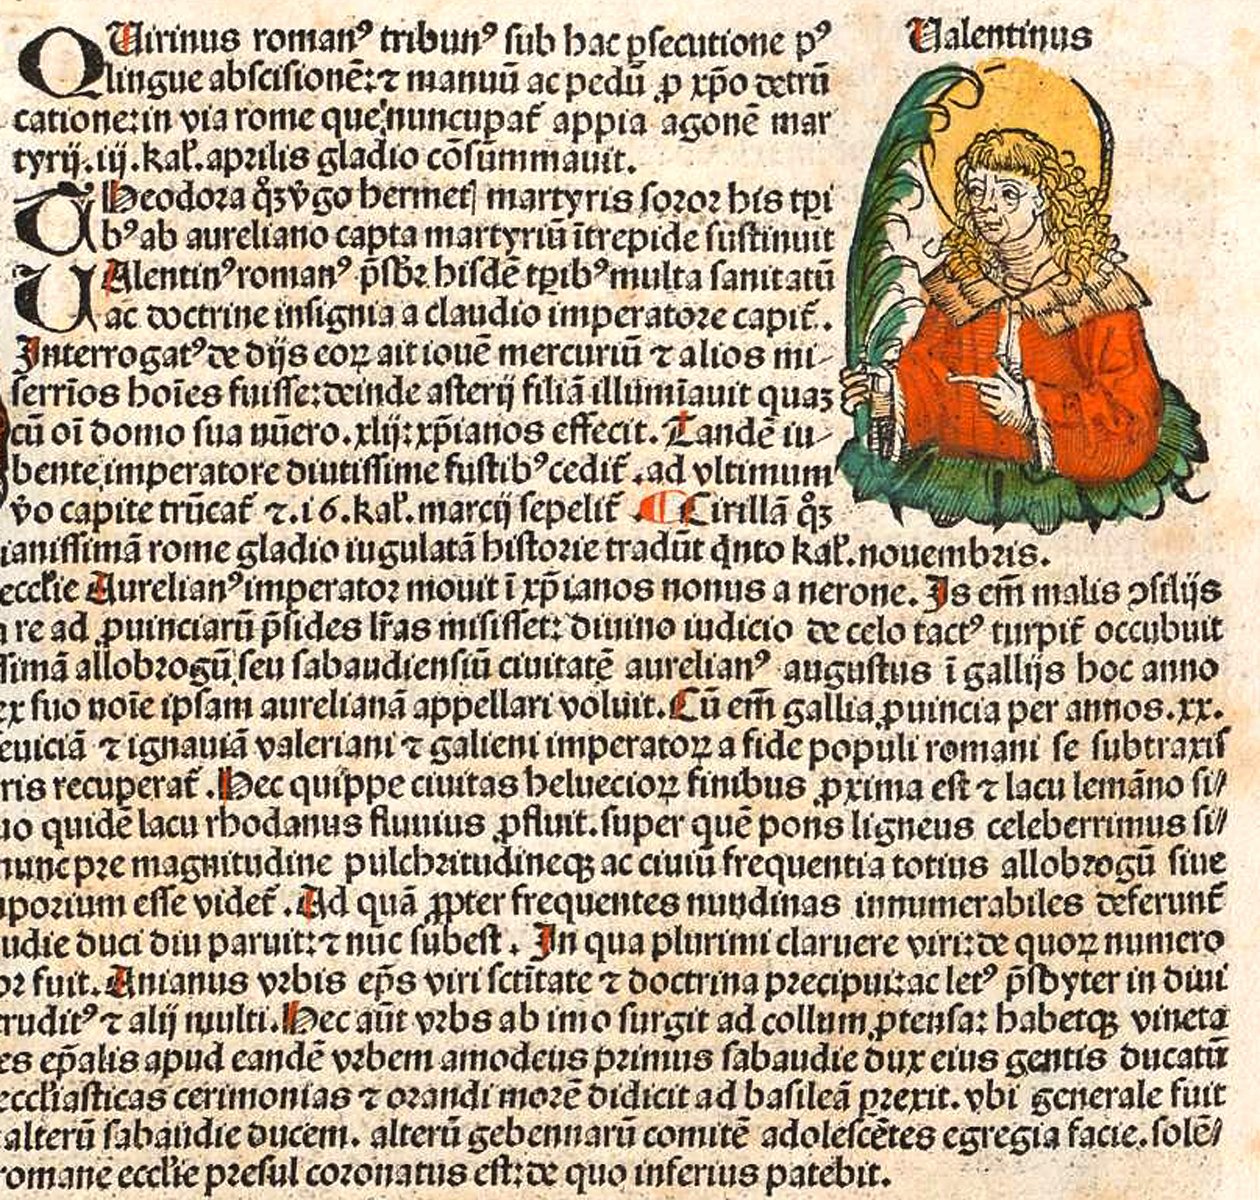 Quirinus roman⁹ tribun⁹ sub hac ꝑsecutione p⁹
lingue abscisionē: ⁊ manuū ac pedū ꝓ xp̄o detrū
catione: in via rome que nuncupat̄ appia agonē mar
tyrij .iij. kal̄. aprilis gladio cōsūmmauit.
Theodora qꝫ v̄go hermetꝭ martyris soror his tꝑi
b⁹ ab aureliano capta martyriū ītrepide sustinuit
Valentin⁹ roman⁹ p̄sbr̄ hisdē tꝑib⁹ multa sanitatū
ac doctrine insignia a claudio imperatore capit̄.
Interrogat⁹ de dijs eoꝝ ait iouē mercuriū ⁊ alios mi-
serrīos hoīes fuisse: deinde asterij filiā illumīauit quaꝫ
cū oī domo sua nūero .xlij: xp̄ianos effecit. Tandē iu-
bente imperatore diutissime fustib⁹ cedit̄. ad vltimum
v̄o capite trūcat̄ ⁊ .16. kal̄. marcij sepelit̄ ¶ Cirillā qꝫ
ianissimā rome gladio iugulatā historie tradūt qͥnto kal̄. nouembris.
eccl̄ie Aurelian⁹ imperator mouit ī xp̄ianos nonus a nerone. Is em̄ malis ꝯsilijs
re ad ꝓuinciarū p̄sides lr̄as misisset: diuino iudicio de celo tact⁹ turpit̄ occubuit
ssimā allobrogū seu sabaudiensiū ciuitatē aurelian⁹ augustus ī gallijs hoc anno
ex suo noīe ipsam aurelianā appellari voluit. Cū em̄ gallia ꝓuincia per annos .xx.
euiciā ⁊ ignauiā valeriani ⁊ galieni imperatoꝝ a fide populi romani se subtraxis
ris recuperat̄. Hec quippe ciuitas heluecioꝝ finibus ꝓxima est ⁊ lacu lemāno si//
uo quidē lacu rhodanus fluuius ꝓfluit. super quē pons ligneus celeberrimus si//
nunc pre magnitudine pulchritudineqꝫ ac ciuiū frequentia totius allobrogū siue
porium esse videt̄. Ad quā ꝓpter frequentes nundinas innumerabiles deferunt̄
udie duci diu paruit: ⁊ nūc subest. In qua plurimi claruere viri: de quoꝝ numero
or fuit. Anianus vrbis ep̄s viri sctītate ⁊ doctrina precipui: ac let⁹ p̄sbyter in diui
rudit⁹ ⁊ alij multi. Hec aūt vrbs ab imo surgit ad collum ꝓtensa: habetqꝫ vineta
es ep̄alis apud eandē vrbem amodeus primus sabaudie dux eius gentis ducatū
eccl̄iasticas cerimonias ⁊ orandi morē didicit ad basileā ꝑrexit. vbi generale fuit
alterū sabaudie ducem. alterū gebennarū comitē adolescētes egregia facie. solē/
romane eccl̄ie presul coronatus est: de quo inferius patebit.
Valentinus